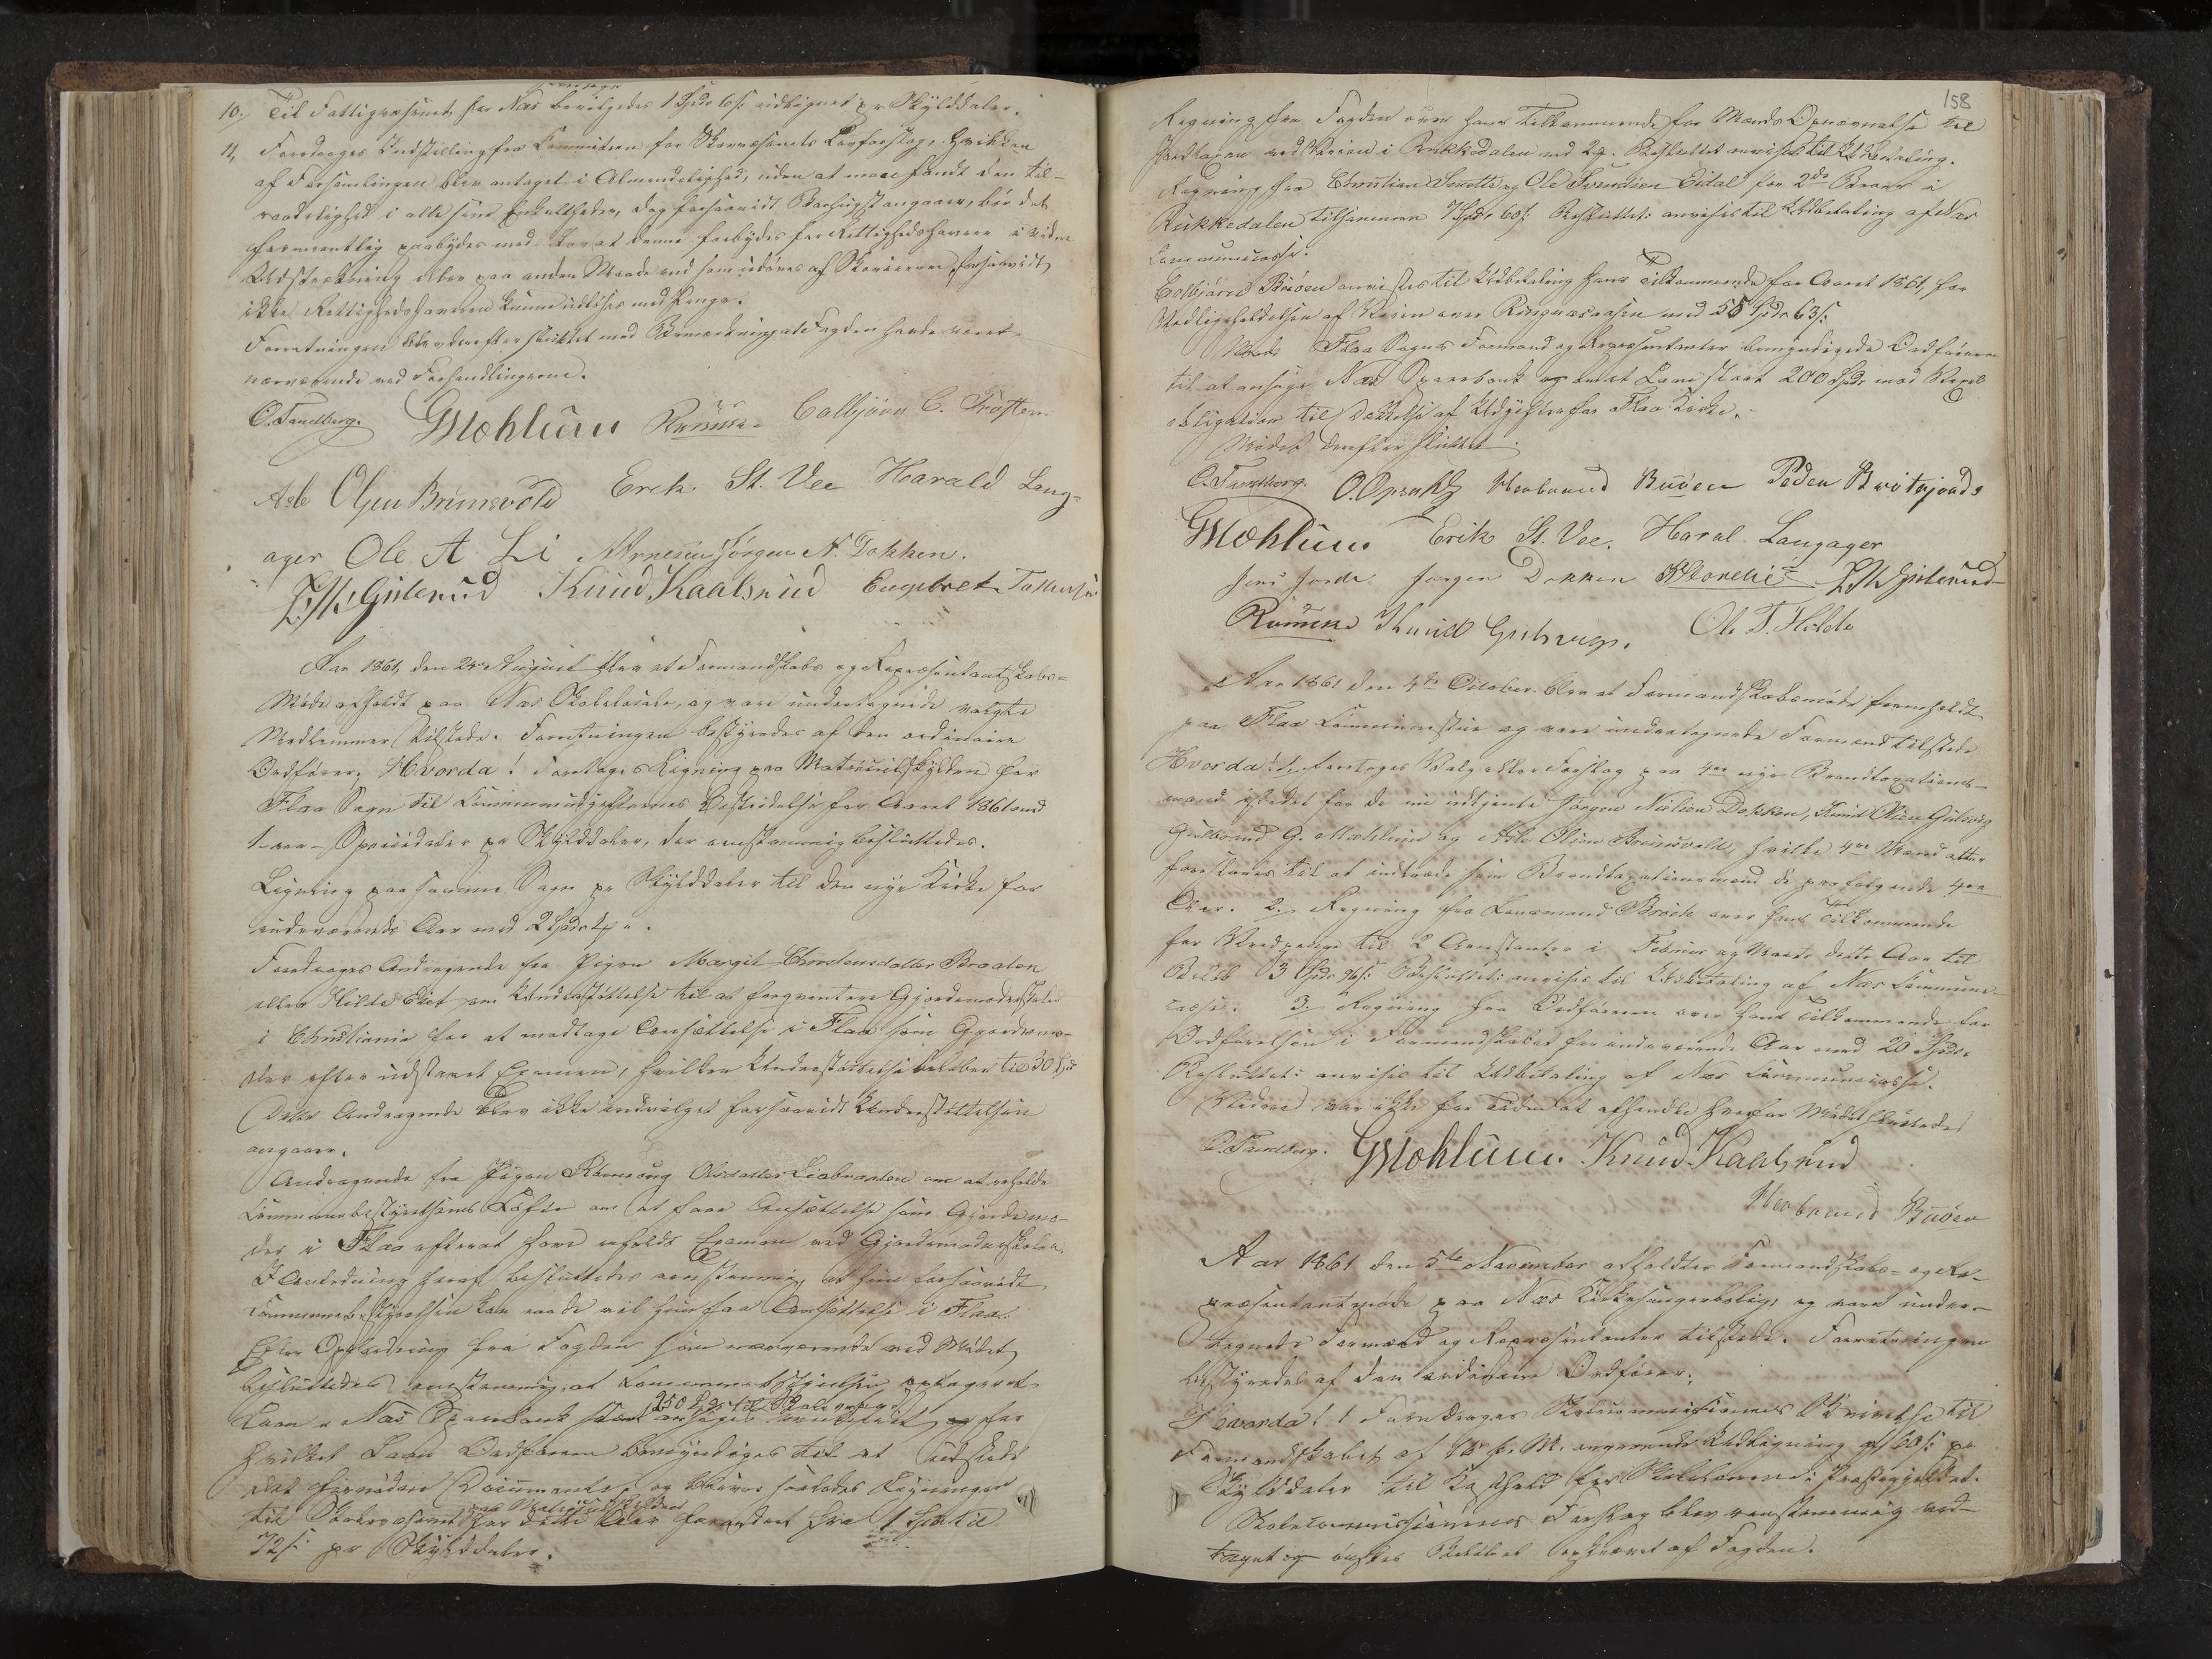 10. Til Fattigvæsenet for Næs bevilgedes 1 Spdr 6 s: udlignet pr Skylddaler.
11, Foredroges Indstilling fra Comiteen for Skovvæsenets Lovforslag, hvilken
af Forsamlingen blev antaget i Almindelighed, uden at man fandt den til-
raadelighed i alle sine Enkeltheder, dog forsaavidt angaaer, bør det
formeentlig paabydes ved Lov at denne forbydes for Rettighedshavere i videre
Udstrækning eller paa anden Maade end som udøves af Skoveieren, forsaavidt
ikke Rettighedshaveren kunne udløses med Penge.
Forretningen blev derefter sluttet med Bemærkning at Fogden havde været
nærværende ved Forhandlingerne.
O. Sandberg. GMehlum Colbjørn C. Trøften
Asle Olsen Brunsvold Erik St. Vee Harald Lang-
ager Ole A Li Jørgen N. Dokken.
Gulerud Knud Kaalsrud Engebret
Aar 1861, den 24 August blev et Formandskabs og Repræsentantskabs-
Møde afholdt paa Næs Skolelocale, og vare undertegnede valgte
Medlemmer tilstede. Forretningen bestyredes af den ordinaire
Ordfører; Hvorda! Foretoges Ligning paa Matriculskylden for
Flaa Sogn til Communeudgifternes Bestridelse for Aaret 1861 med
1 - een - Speciedaler pr Skylddaler, der eenstemmig besluttedes.
Ligning paa samme Sogn pr Skylddaler til den nye Kirke for
indeværende Aar med 2 Spdr
Foredroges Andragende fra Pigen Margit Christensdatter Braaten
eller Hilde Eiet om Understøttelse til at freqventere Gjordemoderskolen
i Christiania for at modtage Ansættelse i Flaa som Gjordemo-
der efter udstaaet Examen, hvilken Understøttelse beløber til 30 Spd
Dette Andragende blev ikke indvilget forsaavidt Understøttelsen
angaaer.
Andragende fra Pigen Olsdatter Liabraaten om at erholde
Communebestyrelsens Løfte om at faae Ansættelse som Gjordemo-
der i Flaa efterat have erholdt Examen ved Gjordemoderskolen.
I Anledning heraf besluttedes eenstemmig, at hun forsaavidt
Communebestyrelsen kan raade vil hun faa Ansættelse i Flaa.
Efter Opfordring fra Fogden som nærværende ved Mødet
besluttedes eenstemmig, at Communebestyrelsen optager et
Laan i Næs Sparebank stort 250 Spdr til Skolevæsenet og for
hvilket Laan Ordføreren bemyndiges til at udstede
det fornødne Document, og bliver saaledes Ligningen
til Skolevæsenet paa Matriculskylden for dette Aar forandret fra 1 Spd til
72 s: pr Skylddaler.
158
Regning fra Fogden over hans Tilkommende for Mænds Opnævnelse til
ved Veien i Rukkedalen med 24 s. Besluttet anvist til Udbetaling.
Regning fra Christian Smette og Ole Svendsen Eidal for 2de Broer i
Rukkedalen tilsammen 7 Spdr 60 s: Besluttet: anvises til Udbetaling af Næs
Communecasse.
Colbjørn Buøen anvistes til Udbetaling hans Tilkommende for Aaret 1861, for
Vedligeholdelsen af Veien over Ringnæsaasen med 55 Spdr 63 s:
Flaa Sogns Formænd og Repræsentanter bemyndigede Ordføreren
til at ansøge Næs Sparebank om et Laan stort 200 Spdr mod
obligation til Dækkelse af Udgifter for Flaa Kirke.
Mødet derefter sluttet.
O. Sandberg. O. Opsahl Herbrand Buøen Peder
GMehlum Erik St. Vee. Haral Langager
Jens Jorde. Jørgen Dokken Gulerud
Knud Gulsvig. Ole T. Hilde
Aar 1861 den 4de October blev et Formandskabsmøde foranholdt
paa Flaa Communestue og vare undertegnede Formænd tilstede
Hvorda: 1. foretoges Valg eller Forslag paa 4re nye Brandtaxations-
mænd istedet for de nu udtjente Jørgen Nielsen Dokken, Knud Olsen Gulsvig
Gulbrand G. Mehlum og Asle Olsen Brunsvold, hvilke 4re Mænd atter
foreslaaes til at indtræde som Brandtaxationsmænd de paafølgende 4re
Aar. 2. Regning fra Lensmand Brock over hans Tilkommende
for til 2 Arrestanter i Februar og Marts dette Aar til
Beløb 3 Spdr 96 s: Besluttet: anvises til Udbetaling af Næs Commune-
casse. 3. Regning fra Ordføreren over hans Tilkommende for
Ordførelsen i Formandskabet for indeværende Aar med 20 Spdr.
Besluttet: anvises til Udbetaling af Næs Communecasse.
Videre var ikke for Tiden at afhandle hvorfor Mødet sluttedes
O. Sandberg. GMehlum. Knud Kaalsrud
Herbrand Buøen
Aar 1861 den 5te November afholdtes Formandskabs- og Re-
præsentantmøde paa Næs Kirkesangerbolig, og vare under-
tegnede Formænd og Repræsentanter tilstede. Forretningen
bestyredes af den ordinaire Ordfører;
Hvorda! 1 Foredroges Skolecommissionens Skrivelse til
Formandskabet af f. M. angaaende Udligning af 60 s: pr
Skylddaler til Kosthold for Skolelærerne i Præstegjeldet.
Skolecommissionens Forslag blev eenstemmig ved-
taget og ønskes Beløbet opkrævet af Fogden.